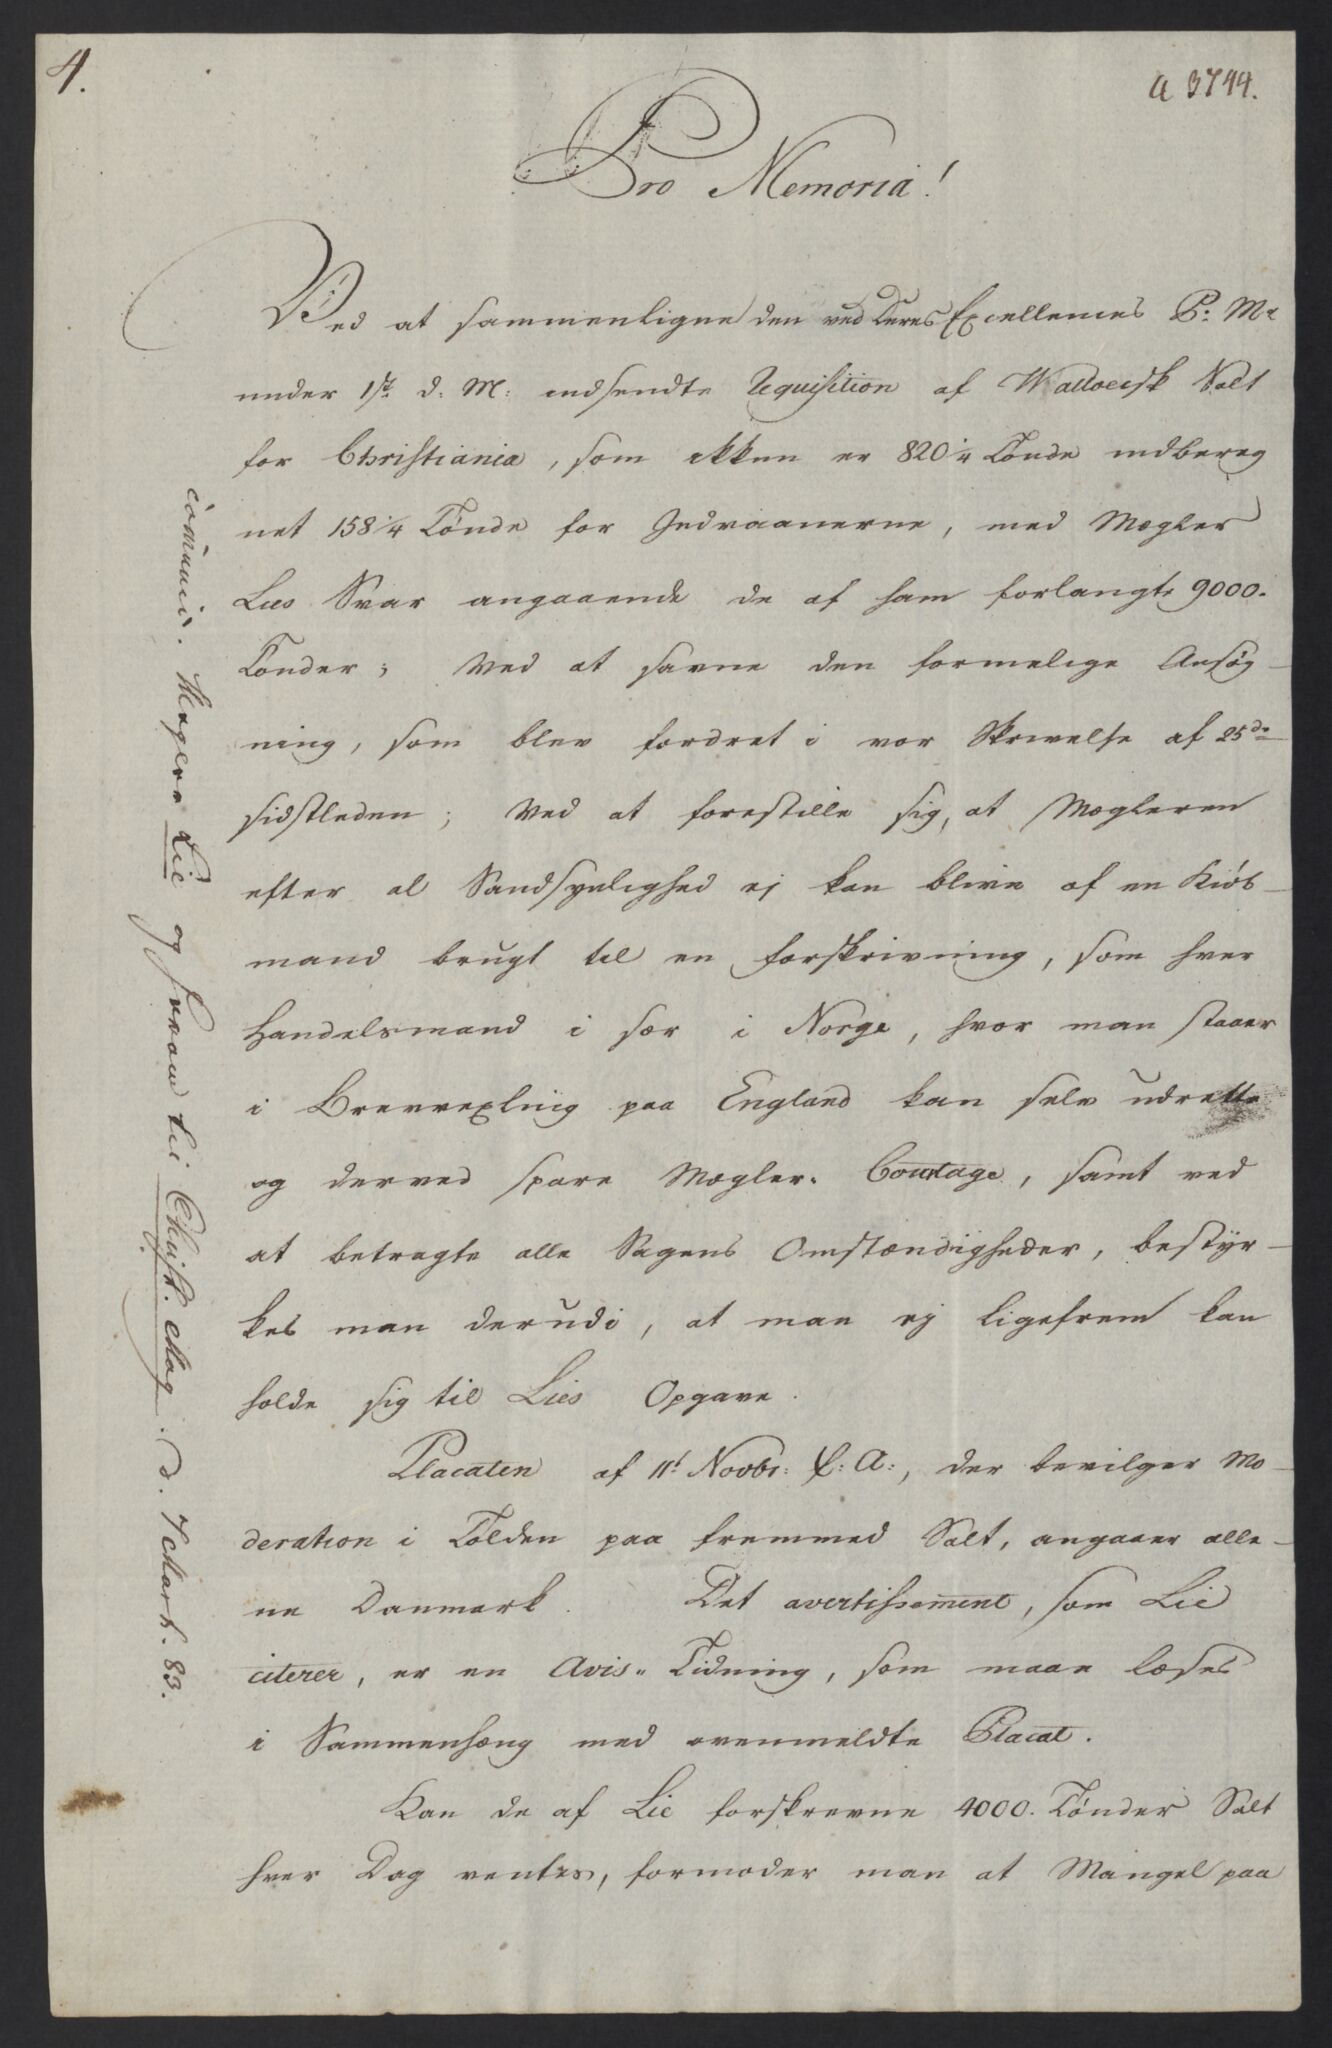 4.
a 3744.
Pro Memoria!
Ved at sammenligne den ved Deres Excellences P: M:
under 1ste d: M: indsendte Requisition af Walloeisk Salt
for Christiania, som ikkun er 820 1/4 Tønde indbereg
net 158 1/4 Tønde for Indvaanerne, med Mægler
Lies Svar angaaende de af ham forlangte 9000.
Tønder; Ved at savne den formelige Ansøg-
ning, som blev fordret i vor Skrivelse af 25de
sidstleden; Ved at forestille sig, at Mægleren
efter al Sandsynlighed ej kan blive af en Kiøb-
mand brugt til en Forskrivning, som hver
Handelsmand i sær i Norge, hvor man staaer
i Brevvexling paa England kan selv udrette
og derved spare Mægler- Courtage, samt ved
at betragte alle Sagens Omstændigheder, bestyr-
kes man derudi, at man ej ligefrem kan
holde sig til Lies Opgave.
Placaten af 11t Novbr: f: A:, der bevilger Mo-
deration i Tolden paa fremmed Salt, angaaer alle-
ne Danmark. Det avertissement, som Lie
citerer, er en Avis- Tidning, som maae læses
i Sammenhæng med ovenmeldte Placat.
Kan de af Lie forskrevne 4000. Tønder Salt
hver Dag ventes, formoder man at Mangel paa
communic. Mægler Lie og til Christ. Mag. d. 7 Mart. 83.